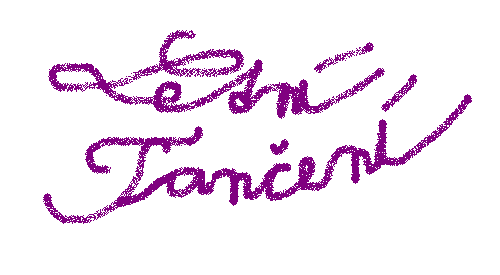 Letní
Tančení